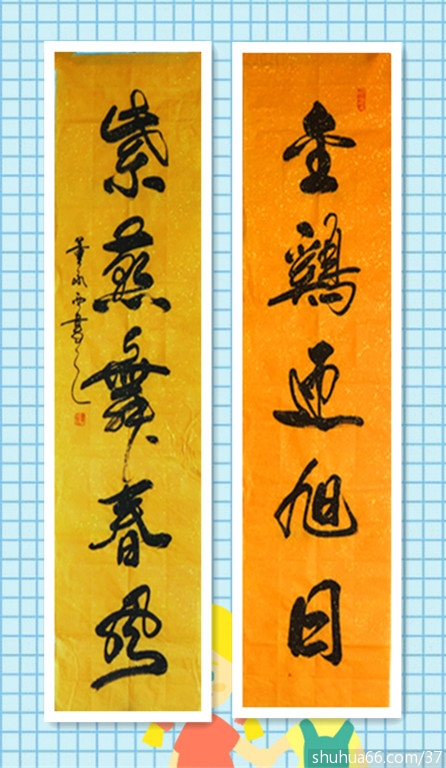 金鷄迎旭日
紫燕舞春風
董永西書
shuhua66.com/37